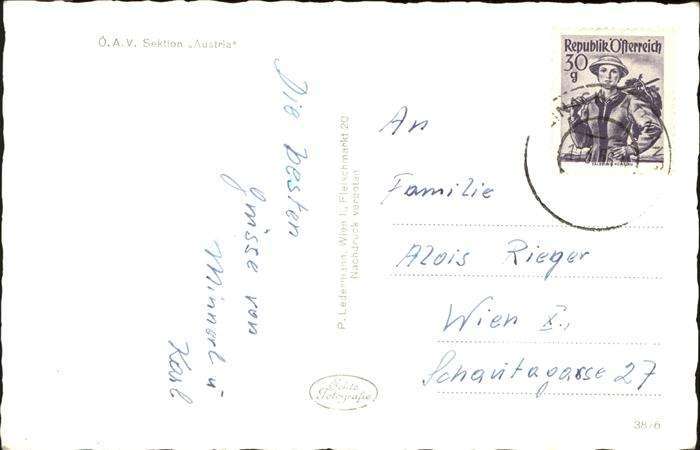 Ö. A. V. Sektion „Austria"
Die besten
Grüsse von
Minnerl u
Karl
P. Ledermann, Wien I., Fleischmarkt 20
Nachdruck verboten
Echte
Fotografie
Republik Österreich
30
g
An
Familie
Alois Rieger
Wien X.,
Schautagasse 27
38/6